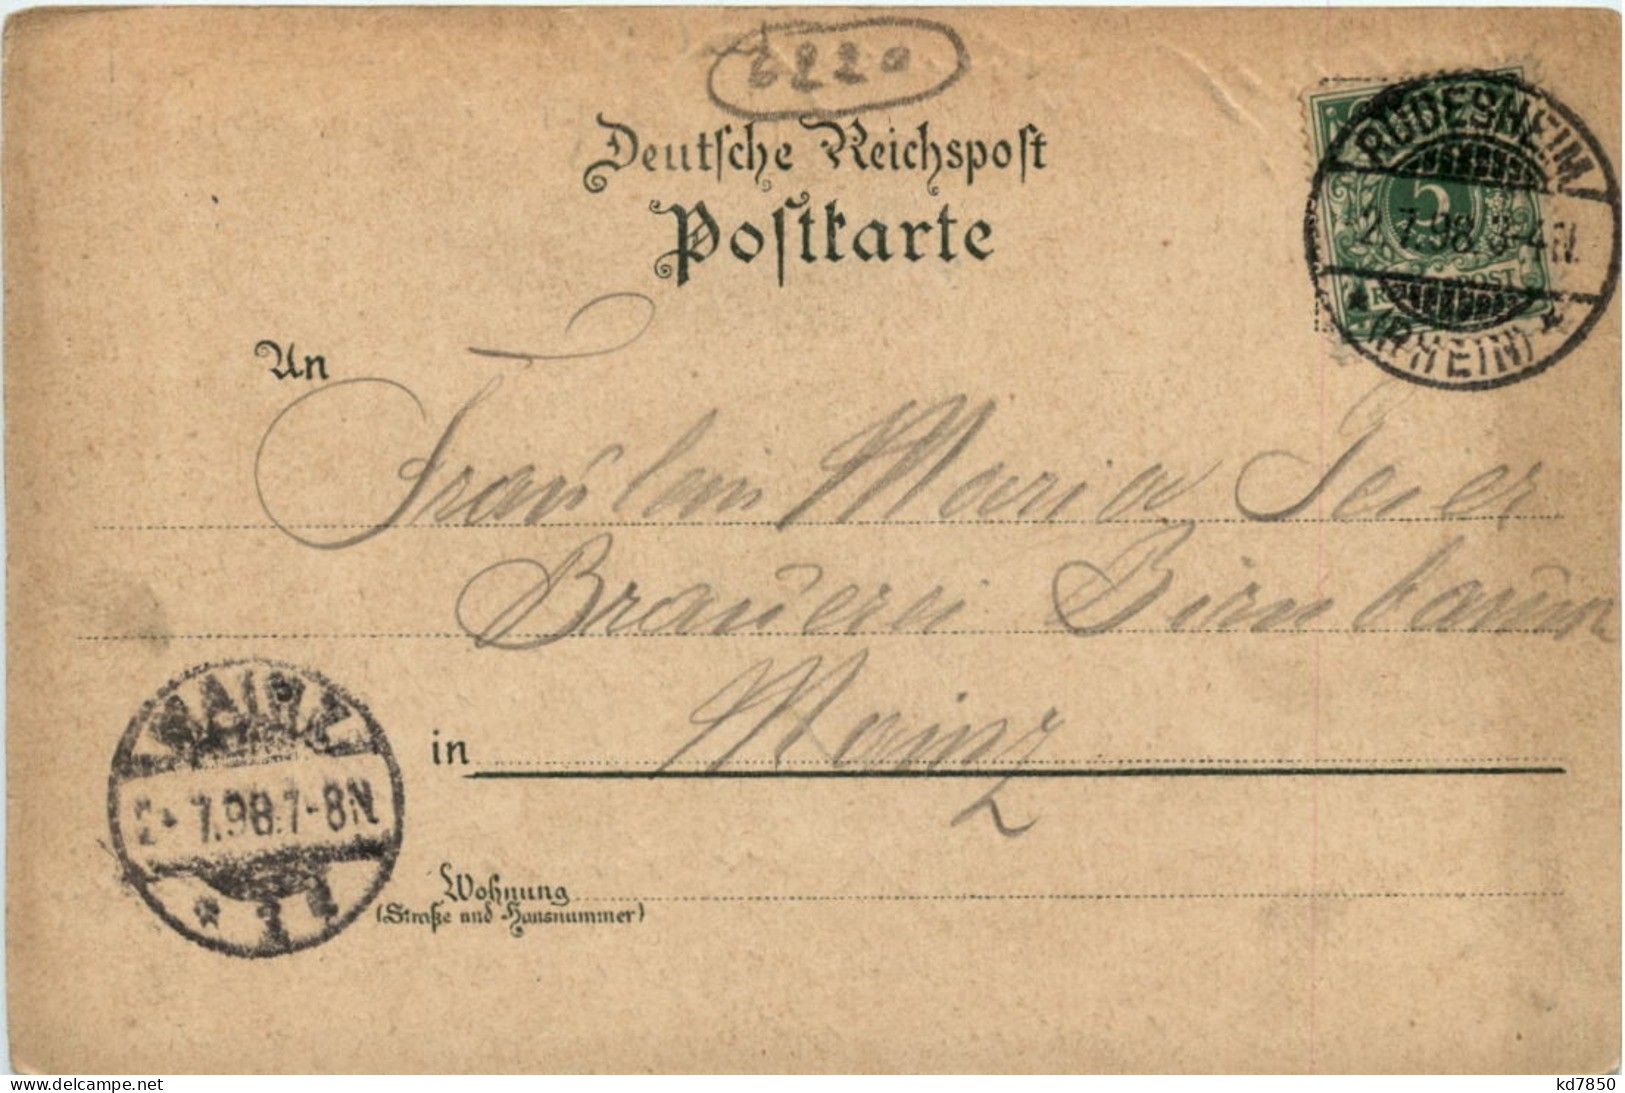 6220
Deutsche Reichspost
Postkarte
RÜDESHEIM
2.7.98.3-4N.
(RHEIN)
5
POST
An
Fräulein Maria Seier
Brauerei Birnbaum
in Mainz
MAINZ
2.7.98.7-8N
Wohnung
(Straße und Hausnummer)
delcampe.net
kd7850